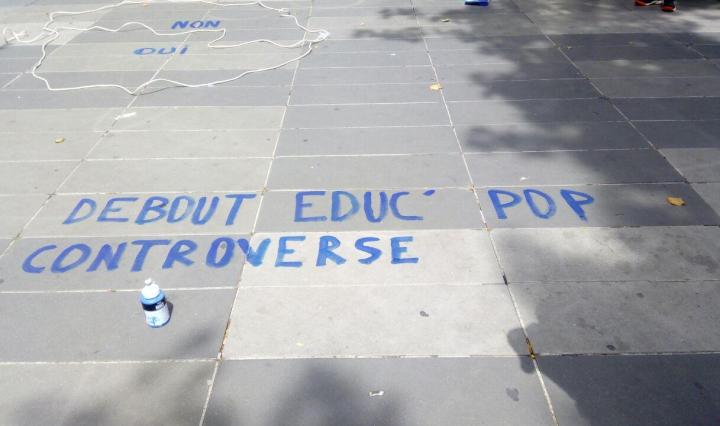 NON
OUI
DEBOUT EDUC' POP
CONTROVERSE